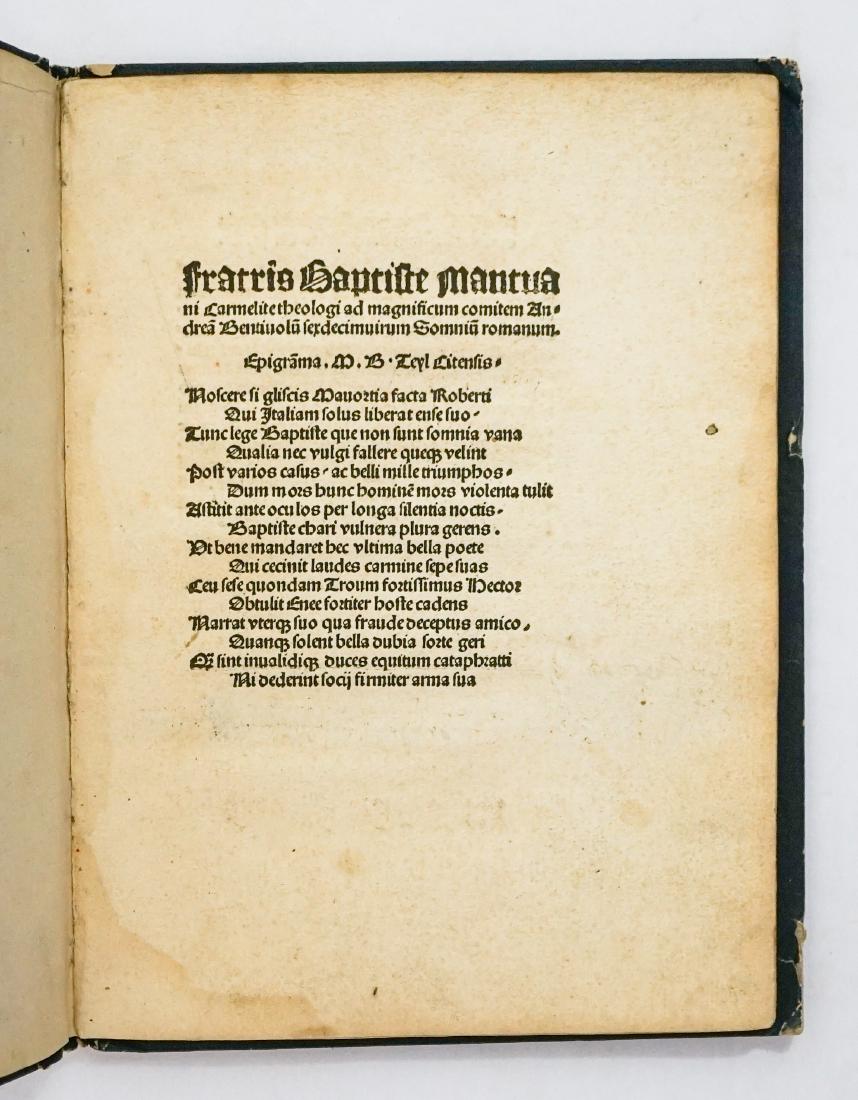 Fratris Baptiste Mantua
ni Carmelite theologi ad magnificum comitem An-
dreā Bentiuolū sexdecimuirum Somniū romanum.
Epigrāma. M. B. Teyl Citensis.
Noscere si gliscis Mauortia facta Roberti
Qui Italiam solus liberat ense suo.
Tunc lege Baptiste que non sunt somnia vana
Qualia nec vulgi fallere queqꝫ velint
Post varios casus. ac belli mille triumphos.
Dum mors hunc hominē mors violenta tulit
Astitit ante oculos per longa silentia noctis.
Baptiste chari vulnera plura gerens.
Vt bene mandaret hec vltima bella poete
Qui cecinit laudes carmine sepe suas
Ceu sese quondam Troum fortissimus Hector
Obtulit Enee fortiter hoste cadens
Narrat vterqꝫ suo qua fraude deceptus amico.
Quanqꝫ solent bella dubia sorte geri
Qꝫ sint inualidiqꝫ duces equitum cataphratti
Ni dederint socij firmiter arma sua